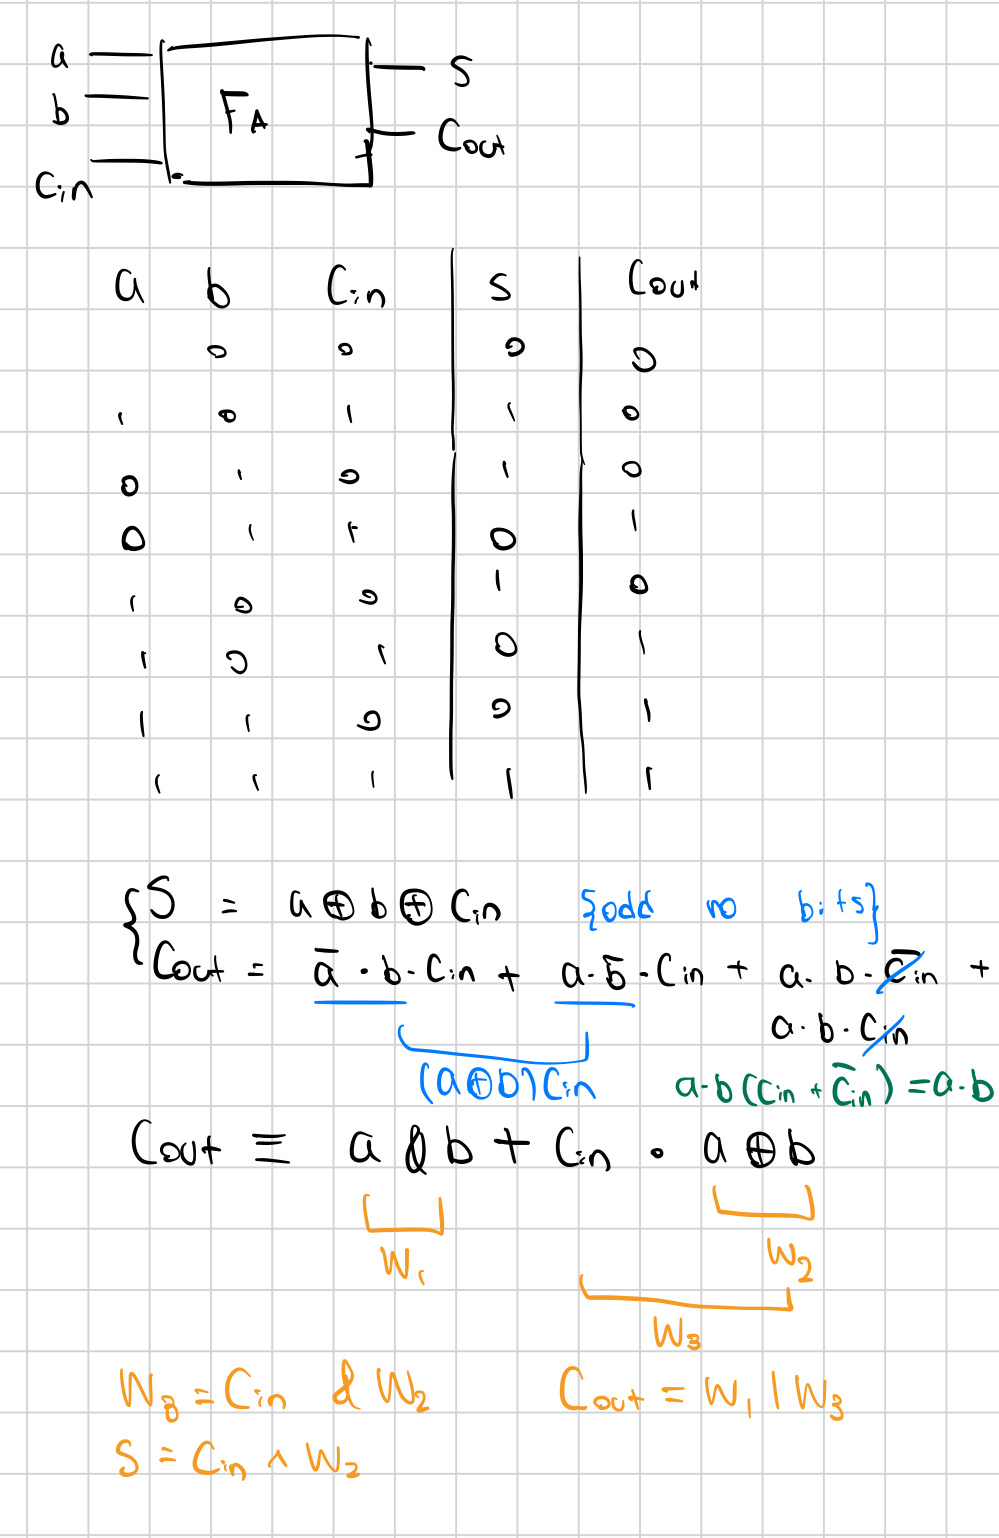 a
b
Cin
FA
S
Cout
a b Cin S Cout
0 0 0 0
1 0 1 1 0
0 1 0 1 0
0 1 1 0 1
1 0 0 1 0
1 0 1 0 1
1 1 0 0 1
1 1 1 1 1
S = a ⊕ b ⊕ Cin {odd no bits}
Cout = a̅ · b · Cin + a · b̅ · Cin + a · b · C̅in +
a · b · Cin
(a⊕b) Cin
a·b (Cin + C̅in) = a·b
Cout ≡ a & b + Cin · a ⊕ b
W1
W2
W3
W3 = Cin & W2
Cout = W1 | W3
S = Cin ^ W2